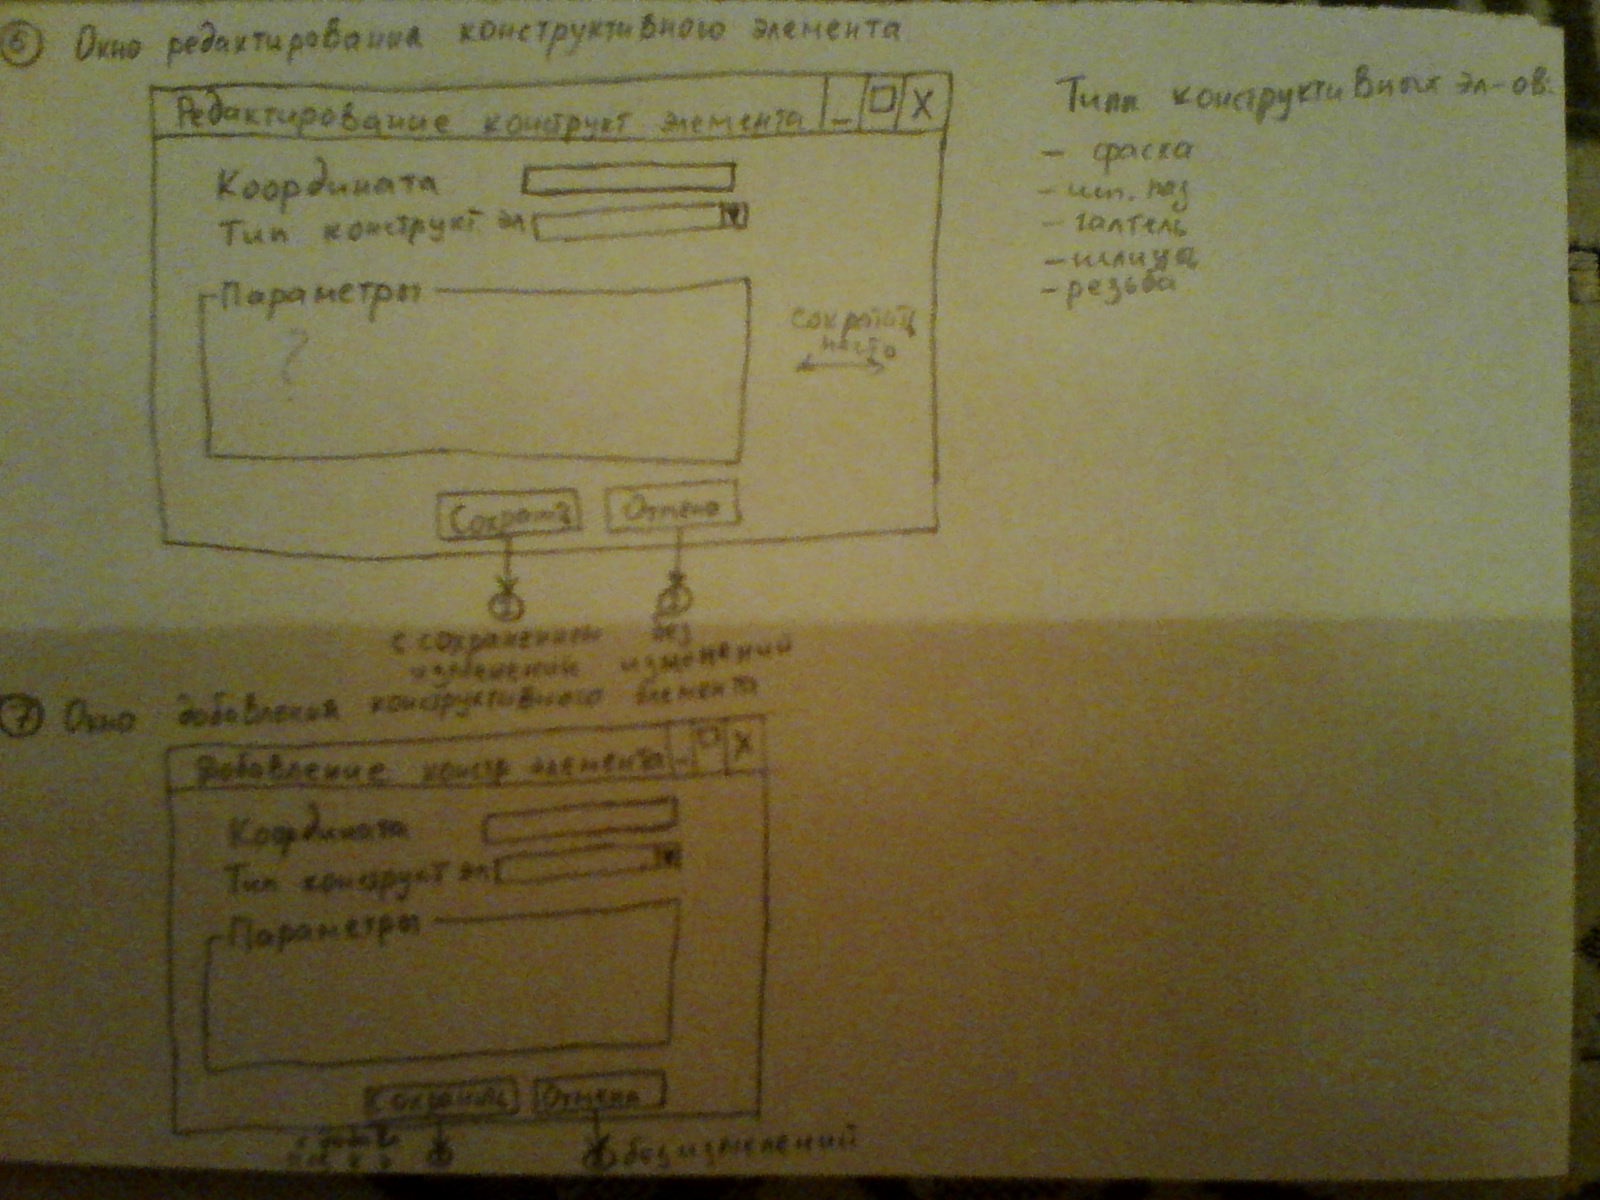 6 Окно редактирования конструктивного элемента
Редактирование конструкт элемента _ □ X
Координата
Тип конструкт эл
Параметры
?
сократить
место
Сохранить Отмена
с сохранением
изменений
без
изменений
Типы конструктивных эл-ов:
- фаска
- шп. паз
- галтель
- шлицы
- резьба
7 Окно добавления конструктивного элемента
Добавление констр элемента _ □ X
Координата
Тип конструкт эл
Параметры
Сохранить Отмена
без изменений